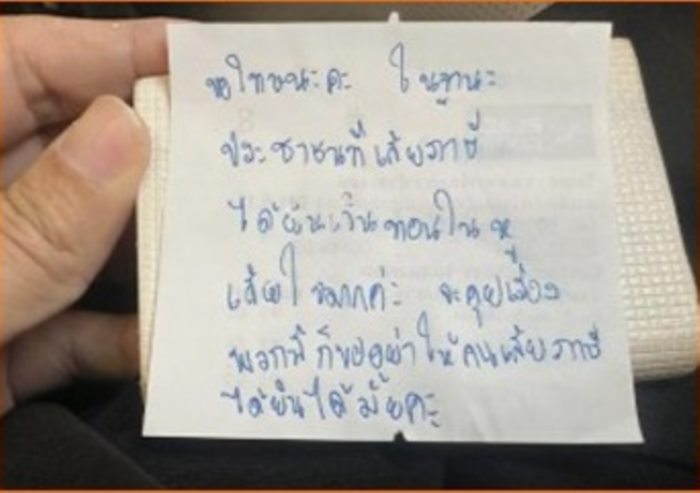 ขอโทษนะคะ ในฐานะ
ประชาชนที่เสียภาษี
ได้ยินเงินทอนในหู
เสียใจมากค่ะ จะคุยเรื่อง
พวกนี้ก็ขออย่าให้คนเสียภาษี
ได้ยินได้มั้ยคะ